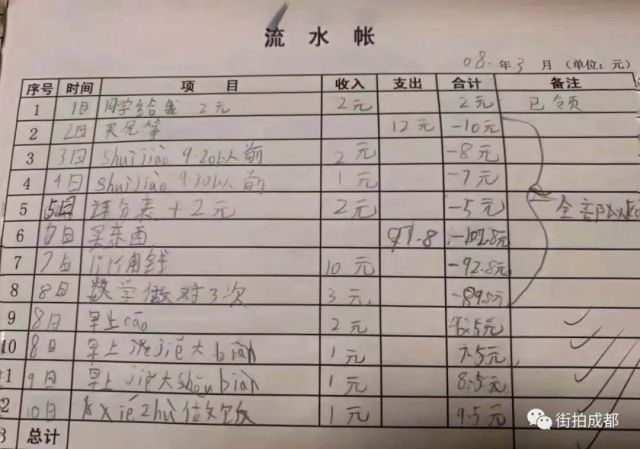 流水帐
08.年3月(单位:元)
序号 时间 项目 收入 支出 合计 备注
1 1日 同学给我2元 2元 2元 已令页
2 2日 买见笔 12元 -10元
3 3日 shuijiào 9:20以前 2元 -8元
4 4日 shuijiào 9:30以人前 1元 -7元
5 5日 评分表+2元 2元 -5元 全部
6 7日 买东西 97.8 -102.8元
7 7日 用钱 10元 -92.8元
8 8日 数学做对3次 3元 -89.8元
9 8日 早上cāo 2元 6.5元
10 8日 早上 jiě大biàn 1元 7.5元
1 9日 早上jiě大biàn 1元 8.5元
2 10日 xiézhù做饭 1元 9.5元
3 总计
街拍成都